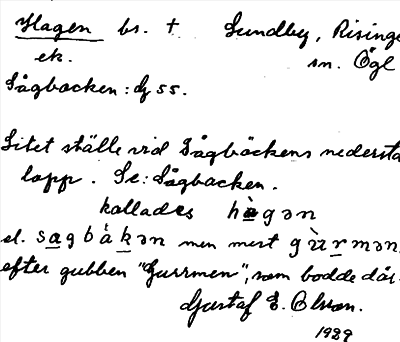 Hagen bs. † Lundby, Risinge
ek. sn. Ögl
Sågbacken: dj ss.
Litet ställe vid Sågbäckens nedersta
lopp. Se: Sågbacken.
kallades hàgən
el. sagbàkən men mest gùrmən,
efter gubben "Gurrmen", som bodde där.
Gustaf E. Olsson.
1929